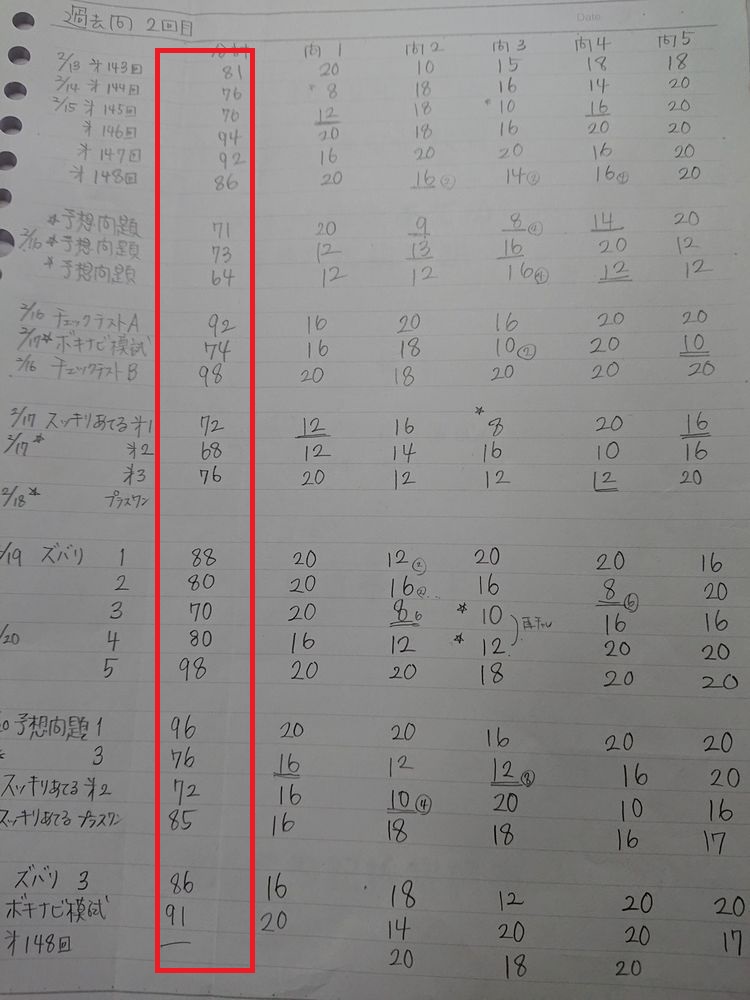 過去(6) 2回目
Date
合計 問1 問2 問3 問4 問5
2/13 第143回 81 20 10 15 18 18
2/14 第144回 76 *8 18 16 14 20
2/15 第145回 76 12 18 *10 16 20
第146回 94 20 18 16 20 20
第147回 92 16 20 20 16 20
第148回 86 20 16② 14 16 20
*予想問題 71 20 9 8④ 14 20
2/16 *予想問題 73 12 13 16 20 12
*予想問題 64 12 12 16 12 12
2/16 チェックテストA 92 16 20 16 20 20
2/17* ボキナビ模試 74 16 18 10② 20 10
2/16 チェックテストB 98 20 18 20 20 20
2/17 スッキリあてる 第1 72 12 16 *8 20 16
2/17* 第2 68 12 14 16 10 16
第3 76 20 12 12 12 20
2/18* プラスワン
/19 ズバリ 1 88 20 12② 20 20 16
2 80 20 16② 16 8⑥ 20
3 70 20 8 6 *10 16 16
/20 4 80 16 12 *12 20 20
5 98 20 20 18 20 20
予想問題 1 96 20 20 16 20 20
3 76 16 12 12⑧ 16 20
スッキリあてる 第2 72 16 10④ 20 10 16
スッキリあてる プラスワン 85 16 18 18 16 17
ズバリ 3 86 16 18 12 20 20
ボキナビ模試 91 20 14 20 20 17
第148回 — 20 18 20